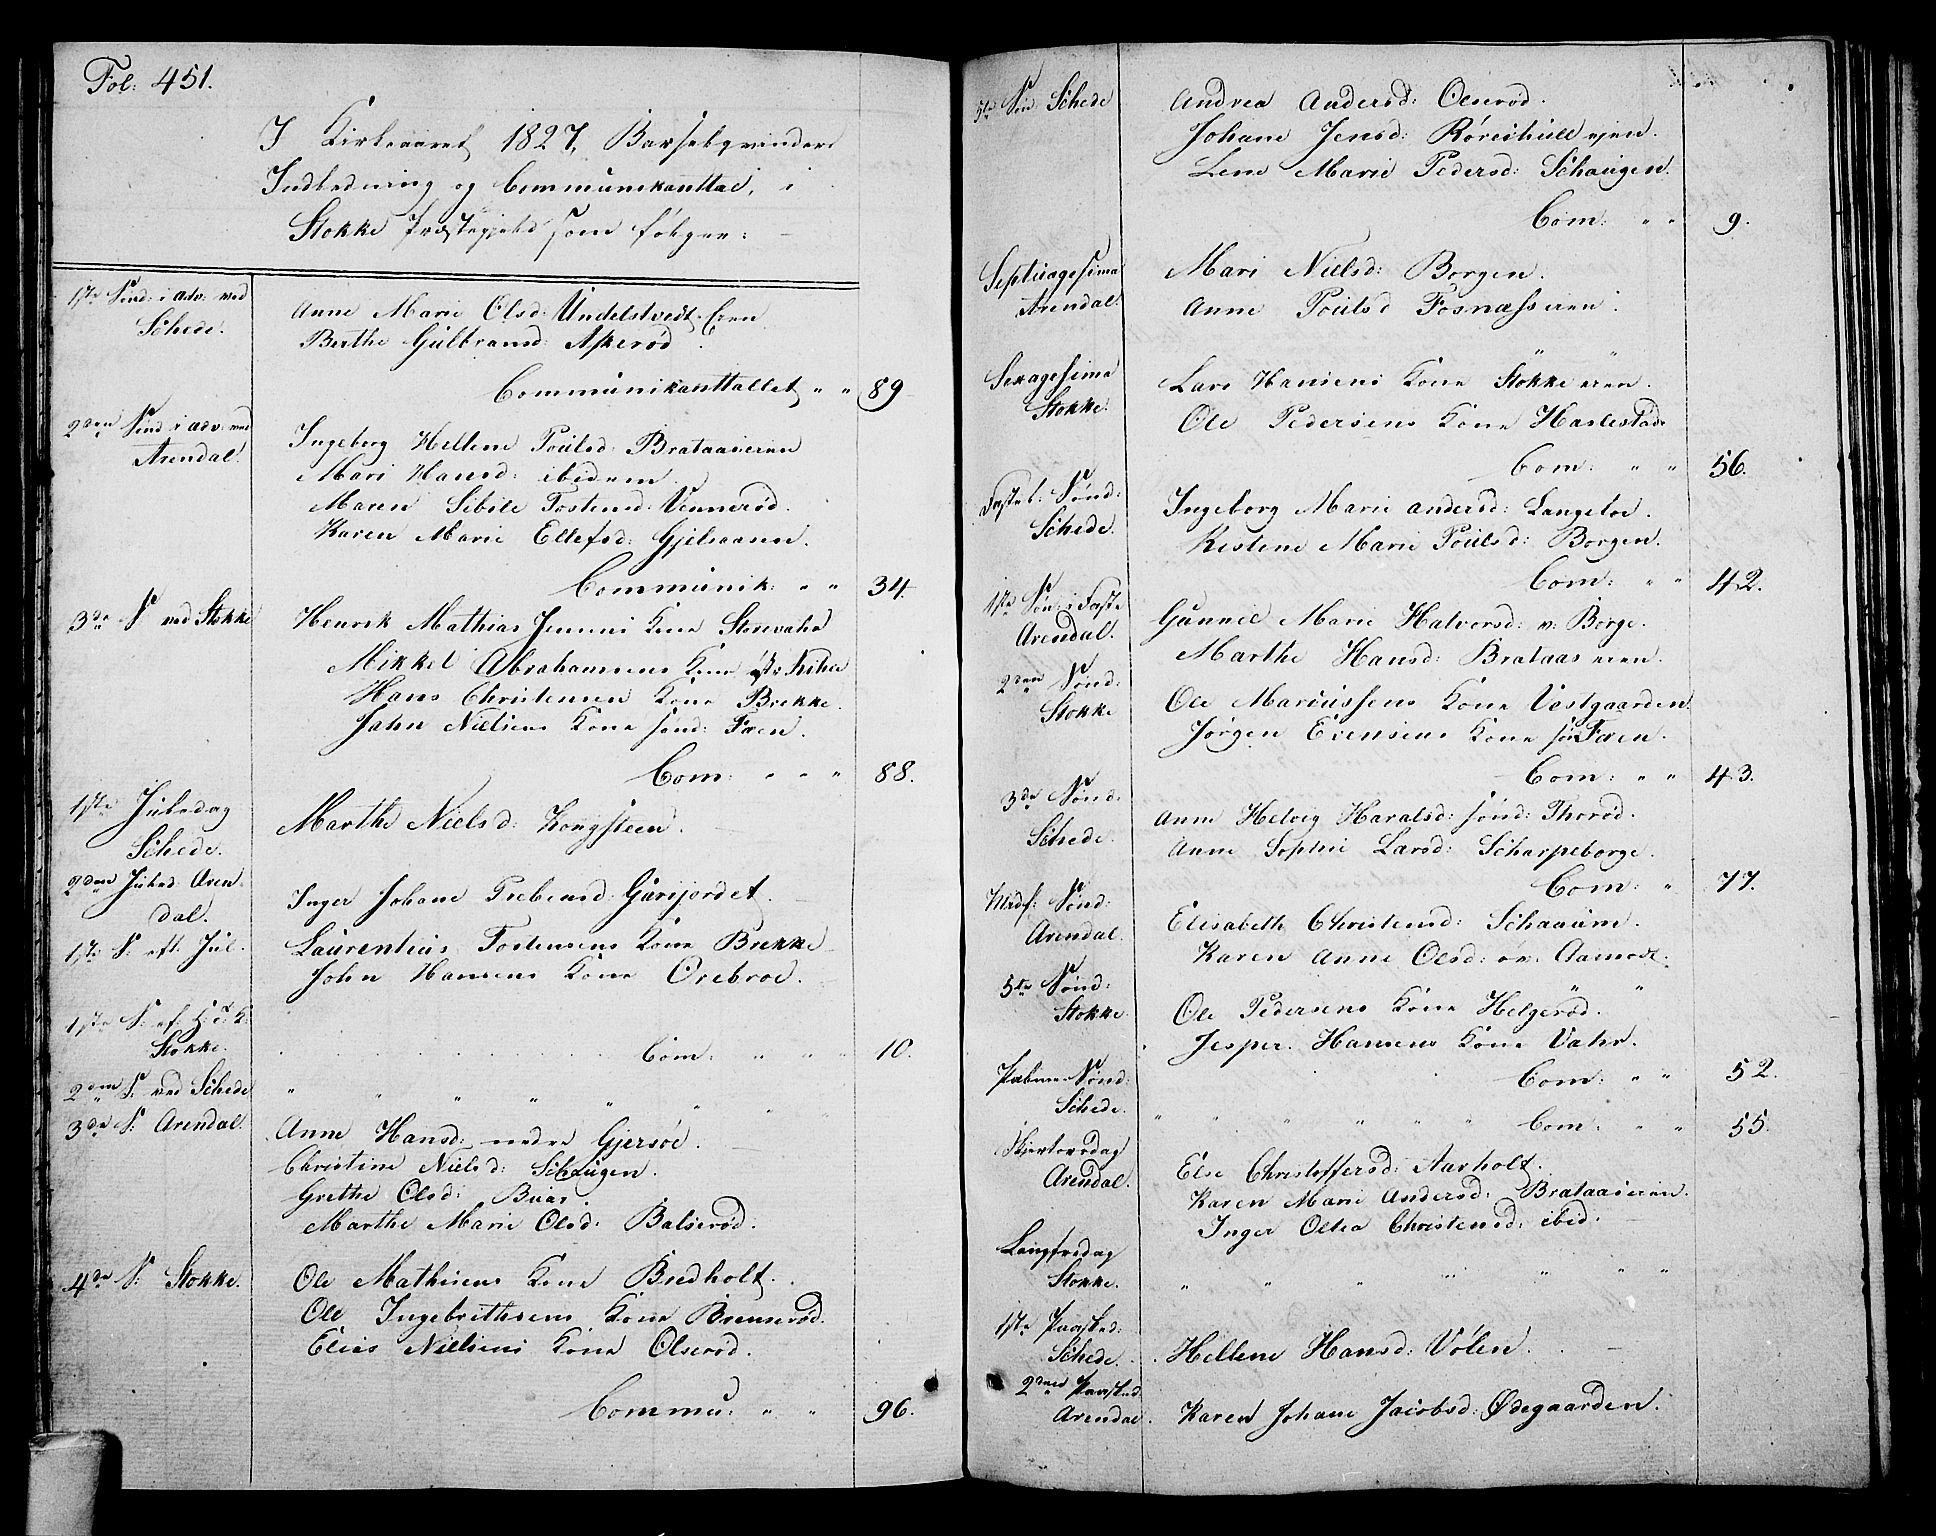 Fol: 451.
I Kirkeaaret 1827, Barselqvinders
Indledning og Communikanttal, i
Stokke Præstegjeld som følger:
1ste Sønd: i adv: ved
Schede.
Anne Marie Olsd: Undelstvedt Eien
Berthe Gulbransd: Askerød.
Communikanttallet " " 89
2den Sønd i adv: ved
Arendal.
Ingeborg Hellene Poulsd: Brataaseien
Mari Hansd: ibidem.
Maren Sibile Tostensd: Vennerød.
Karen Marie Ellefsd: Gjelsaasen.
Communik: " " 34.
3de S ved Stokke
Henrik Mathias Jensens Kone Storevahr
Mikkel Abrahamsens Kone østr
Hans Christensen Kone Brekke.
John Nielsens Kone sønd: Fæen.
Com: " " " 88.
1ste Juledag
Schede.
Marthe Nielsd: Kongsteen.
2den Juled: Aren-
dal.
Inger Johane Prebensd: Gurijordet.
1ste S: eft. Jul.
Laurentius Tostensens Kone Brekke
John Hansens Kone Orebroe.
1ste S: ef: H: 3 K:
Stokke.
Com: " " " 10.
2den S: ved Schede " " " " " " " "
3de S: Arendal.
Anne Hansd: nedre Gjersøe.
Christine Nielsd: Schaugen.
Grethe Olsd: Buas
Marthe Marie Olsd: Balserød.
4de S: Stokke.
Ole Mathisens Kone Bredholt.
Ole Ingebrethsens Kone Brenserød.
Elias Nielsens Kone Olserød.
Commu: " " 96.
5te Søn Schede
Andrea Andersd: Olserød.
Johane Jensd: Røreihull eien.
Lene Marie Pedersd: Schaugen.
Com: " " 9.
Septuagesima
Arendal.
Mari Nielsd: Borgen.
Anne Poulsd Fosnæss eien.
" "
Sexagesima
Stokke.
Lars Hansens Kone Stokke eien.
Ole Pedersens Kone Haslestad
Com: " " 56.
Fastel: Sønd:
Schede.
Ingeborg Marie Andersd: Langeloe.
Kistene Marie Poulsd: Borgen.
Com: " " 42.
1ste Søn: i Faste
Arendal.
Gunnel Marie Halvorsd: v: Borge.
Marthe Hansd: Brataas eien.
2den Sønd:
Stokke
Ole Marcussens Kone Vestgaarden.
Jørgen Evensens Kone sø: Fæen.
Com: " " 43.
3de Sønd:
Schede.
Anne Helvig Haralsd: sønd: Thorød.
Anne Sophie Larsd: Scharpeborge.
Com: " 77.
Midf: Sønd:
Arendal.
Elisabeth Christensd: Schauum.
Karen Anne Olsd: øv: Aamodt.
" "
5te Sønd:
Stokke.
Ole Pedersens Kone Helgerød.
Jesper Hansens Kone Vahr.
Com: " " 52.
Palme Sønd:
Schede. " " " " " "
Com: " " 55.
Skjertorsdag
Arendal.
Else Christoffersd: Aarholt.
Karen Marie Andersd: Brataaseien.
Inger Oltea Christensd: ibid.
Langfredag
Stokke. " " " " " " "
1ste Paasked:
Schede.
Hellene Hansd: Volen.
2den Paasked.
Arendal.
Karen Johane Jacobsd: Ødegaarden.